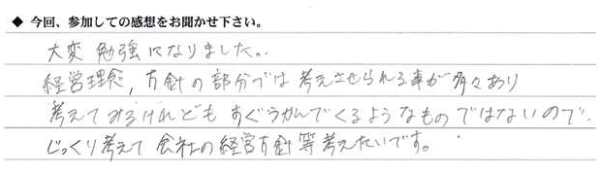 ◆ 今回、参加しての感想をお聞かせ下さい。
大変勉強になりました。
経営理念,方針の部分では考えさせられる事が多々あり
考えてみるけれどもすぐうかんでくるようなものではないので、
じっくり考えて会社の経営方針等考えたいです。